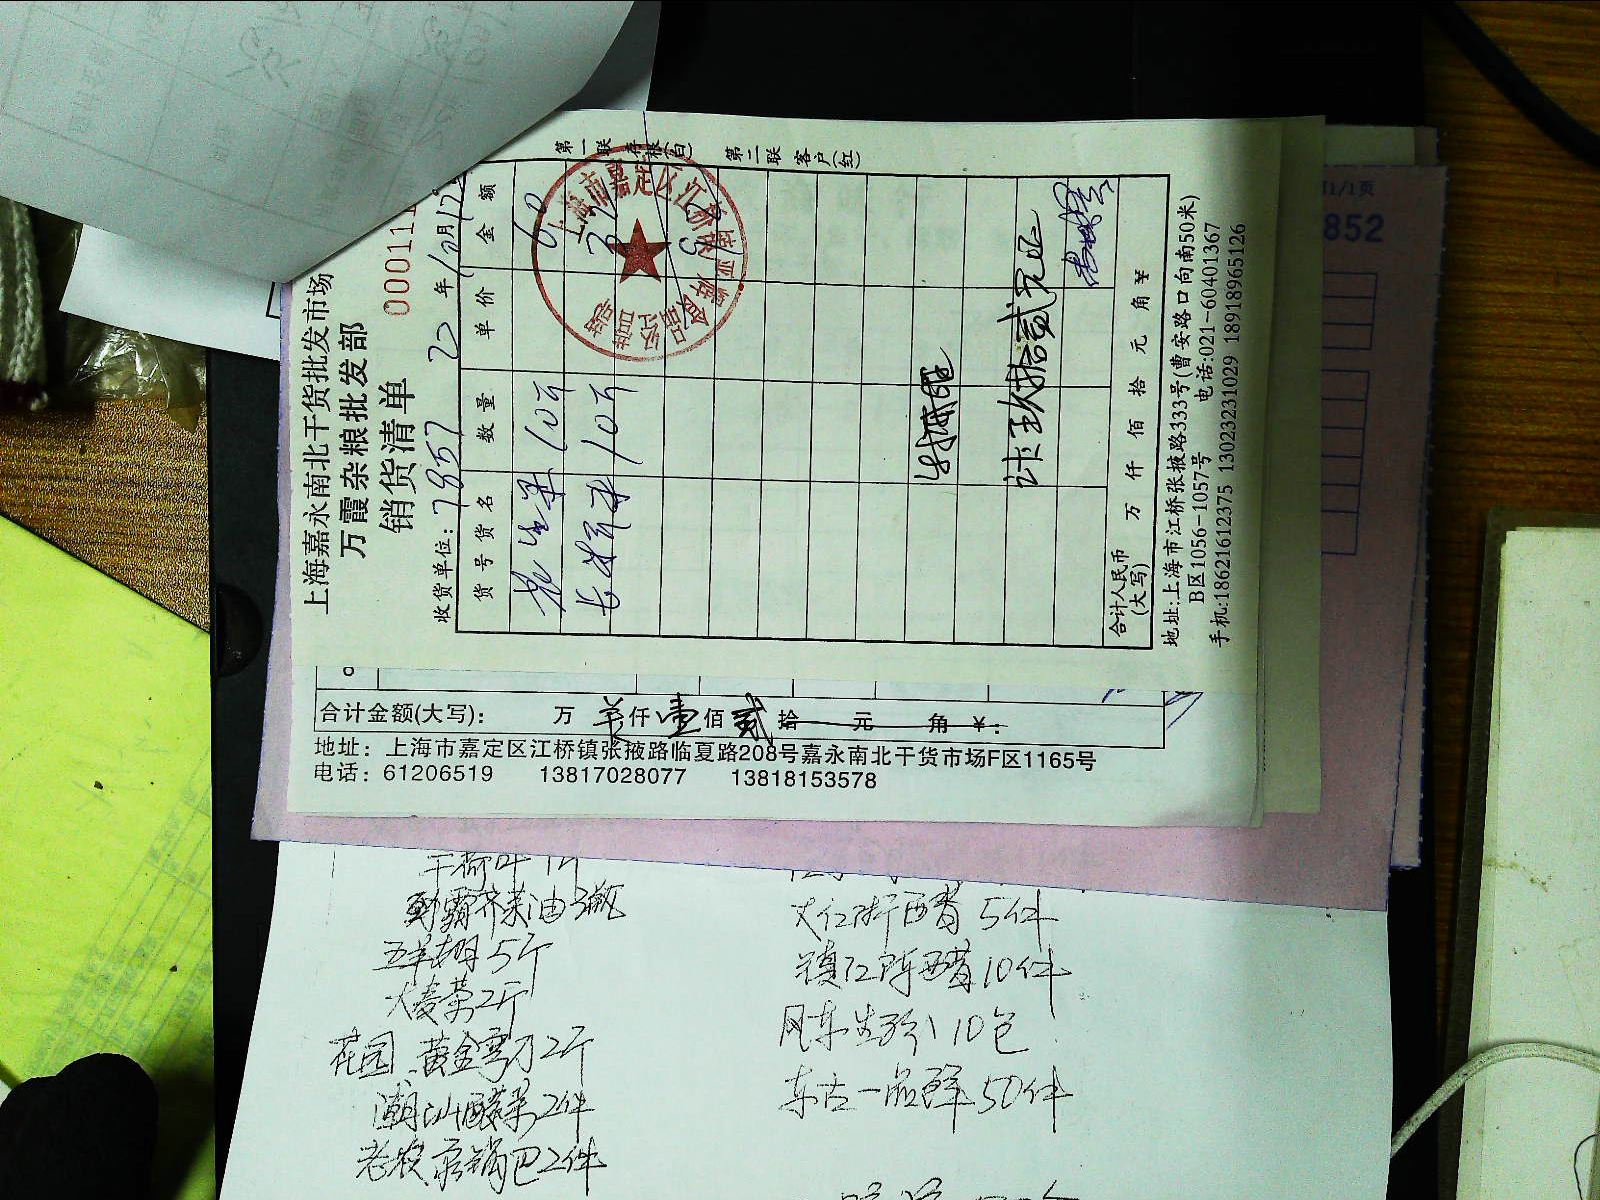 上海嘉永南北干货批发市场
万霞杂粮批发部
销货清单
000111
收货单位：78557
22年10月12
货号 货名 数量 单价 金额
花生米 10斤 60
长粒米 10斤
计玖拾贰元正
合计人民币(大写) 万 仟 佰 拾 元 角 ¥
地址:上海市江桥张掖路333号(曹安路口向南50米)
B区1056-1057号 电话:021-60401367
手机:18621612375 13023231029 18918965126
第一联 存根(白) 第二联 客户(红)
上海市嘉定区江桥
第1/1页
852
合计金额(大写)： 万 仟 壹佰 贰拾 元 角 ¥：
地址：上海市嘉定区江桥镇张掖路临夏路208号嘉永南北干货市场F区1165号
电话：61206519 13817028077 13818153578
干荷叶1斤
劲霸芥菜油3瓶
5斤
大麦茶2斤
花园 黄金弯刀2斤
潮汕酸菜2件
锅巴2件
大红浙西醋 5件
镇江陈西醋10件
风车生粉 10包
东古一品鲜50件